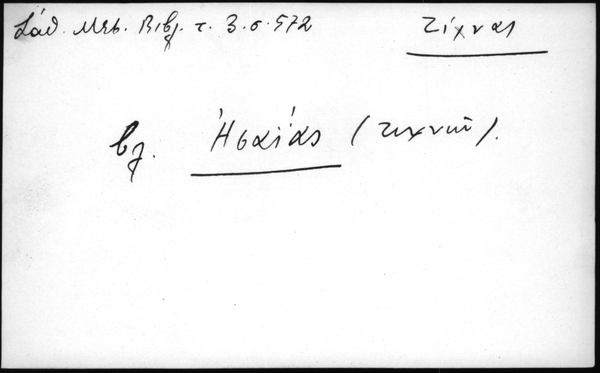 Σάθ. Μεσ. Βιβλ. τ. 3. σ. 572 Τίχνας
βλ. Ἠσαΐας (Τιχνᾶ).